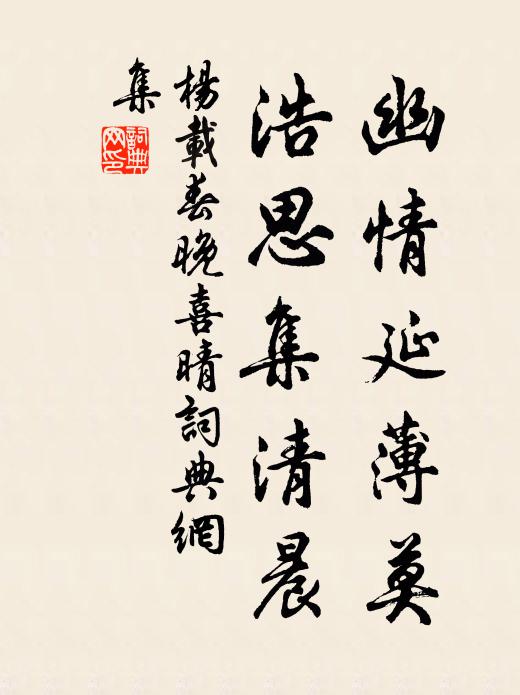 幽情延薄莫
浩思集清晨
楊載春晚喜晴詞典網
集
詞典
网印